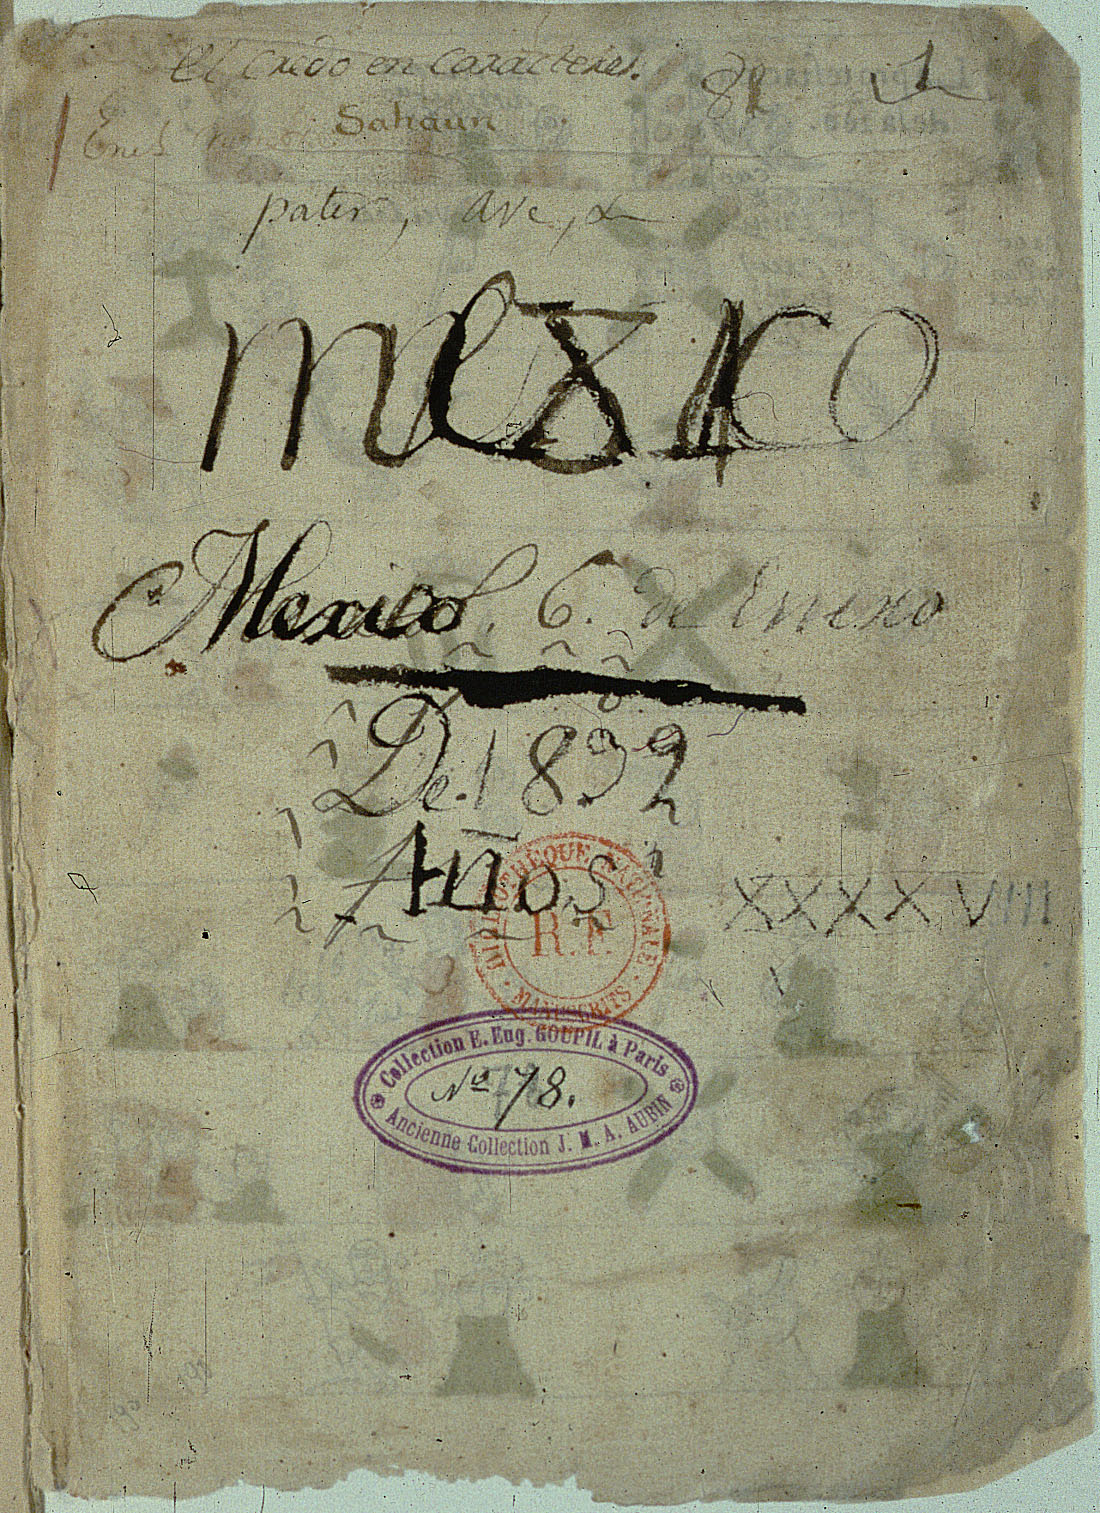 El Credo en Caracteres. 82 1
Sahaun
pater, ave, &
MEXICO
Mexico. 6. de Enero
De. 1832
Años
XXXXVIII
BIBLIOTHÈQUE NATIONALE
R.F.
MANUSCRITS
Collection E. Eug. GOUPIL à Paris
Nº 78.
Ancienne Collection J. M. A. AUBIN